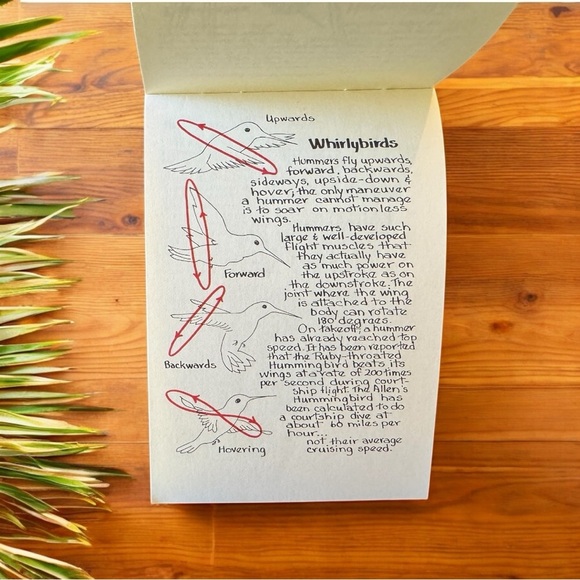 Upwards
Whirlybirds
Hummers fly upwards,
forward, backwards,
sideways, upside-down &
hover; the only maneuver
a hummer cannot manage
is to soar on motionless
wings.
Hummers have such
large & well-developed
flight muscles that
they actually have
as much power on
the upstroke as on
the downstroke. The
joint where the wing
is attached to the
body can rotate
180 degrees.
On takeoff, a hummer
has already reached top
speed. It has been reported
that the Ruby-throated
Hummingbird beats its
wings at a rate of 200 times
per second during court-
ship flight. The Allen's
Hummingbird has
been calculated to do
a courtship dive at
about 60 miles per
hour...
not their average
cruising speed.
Forward
Backwards
Hovering